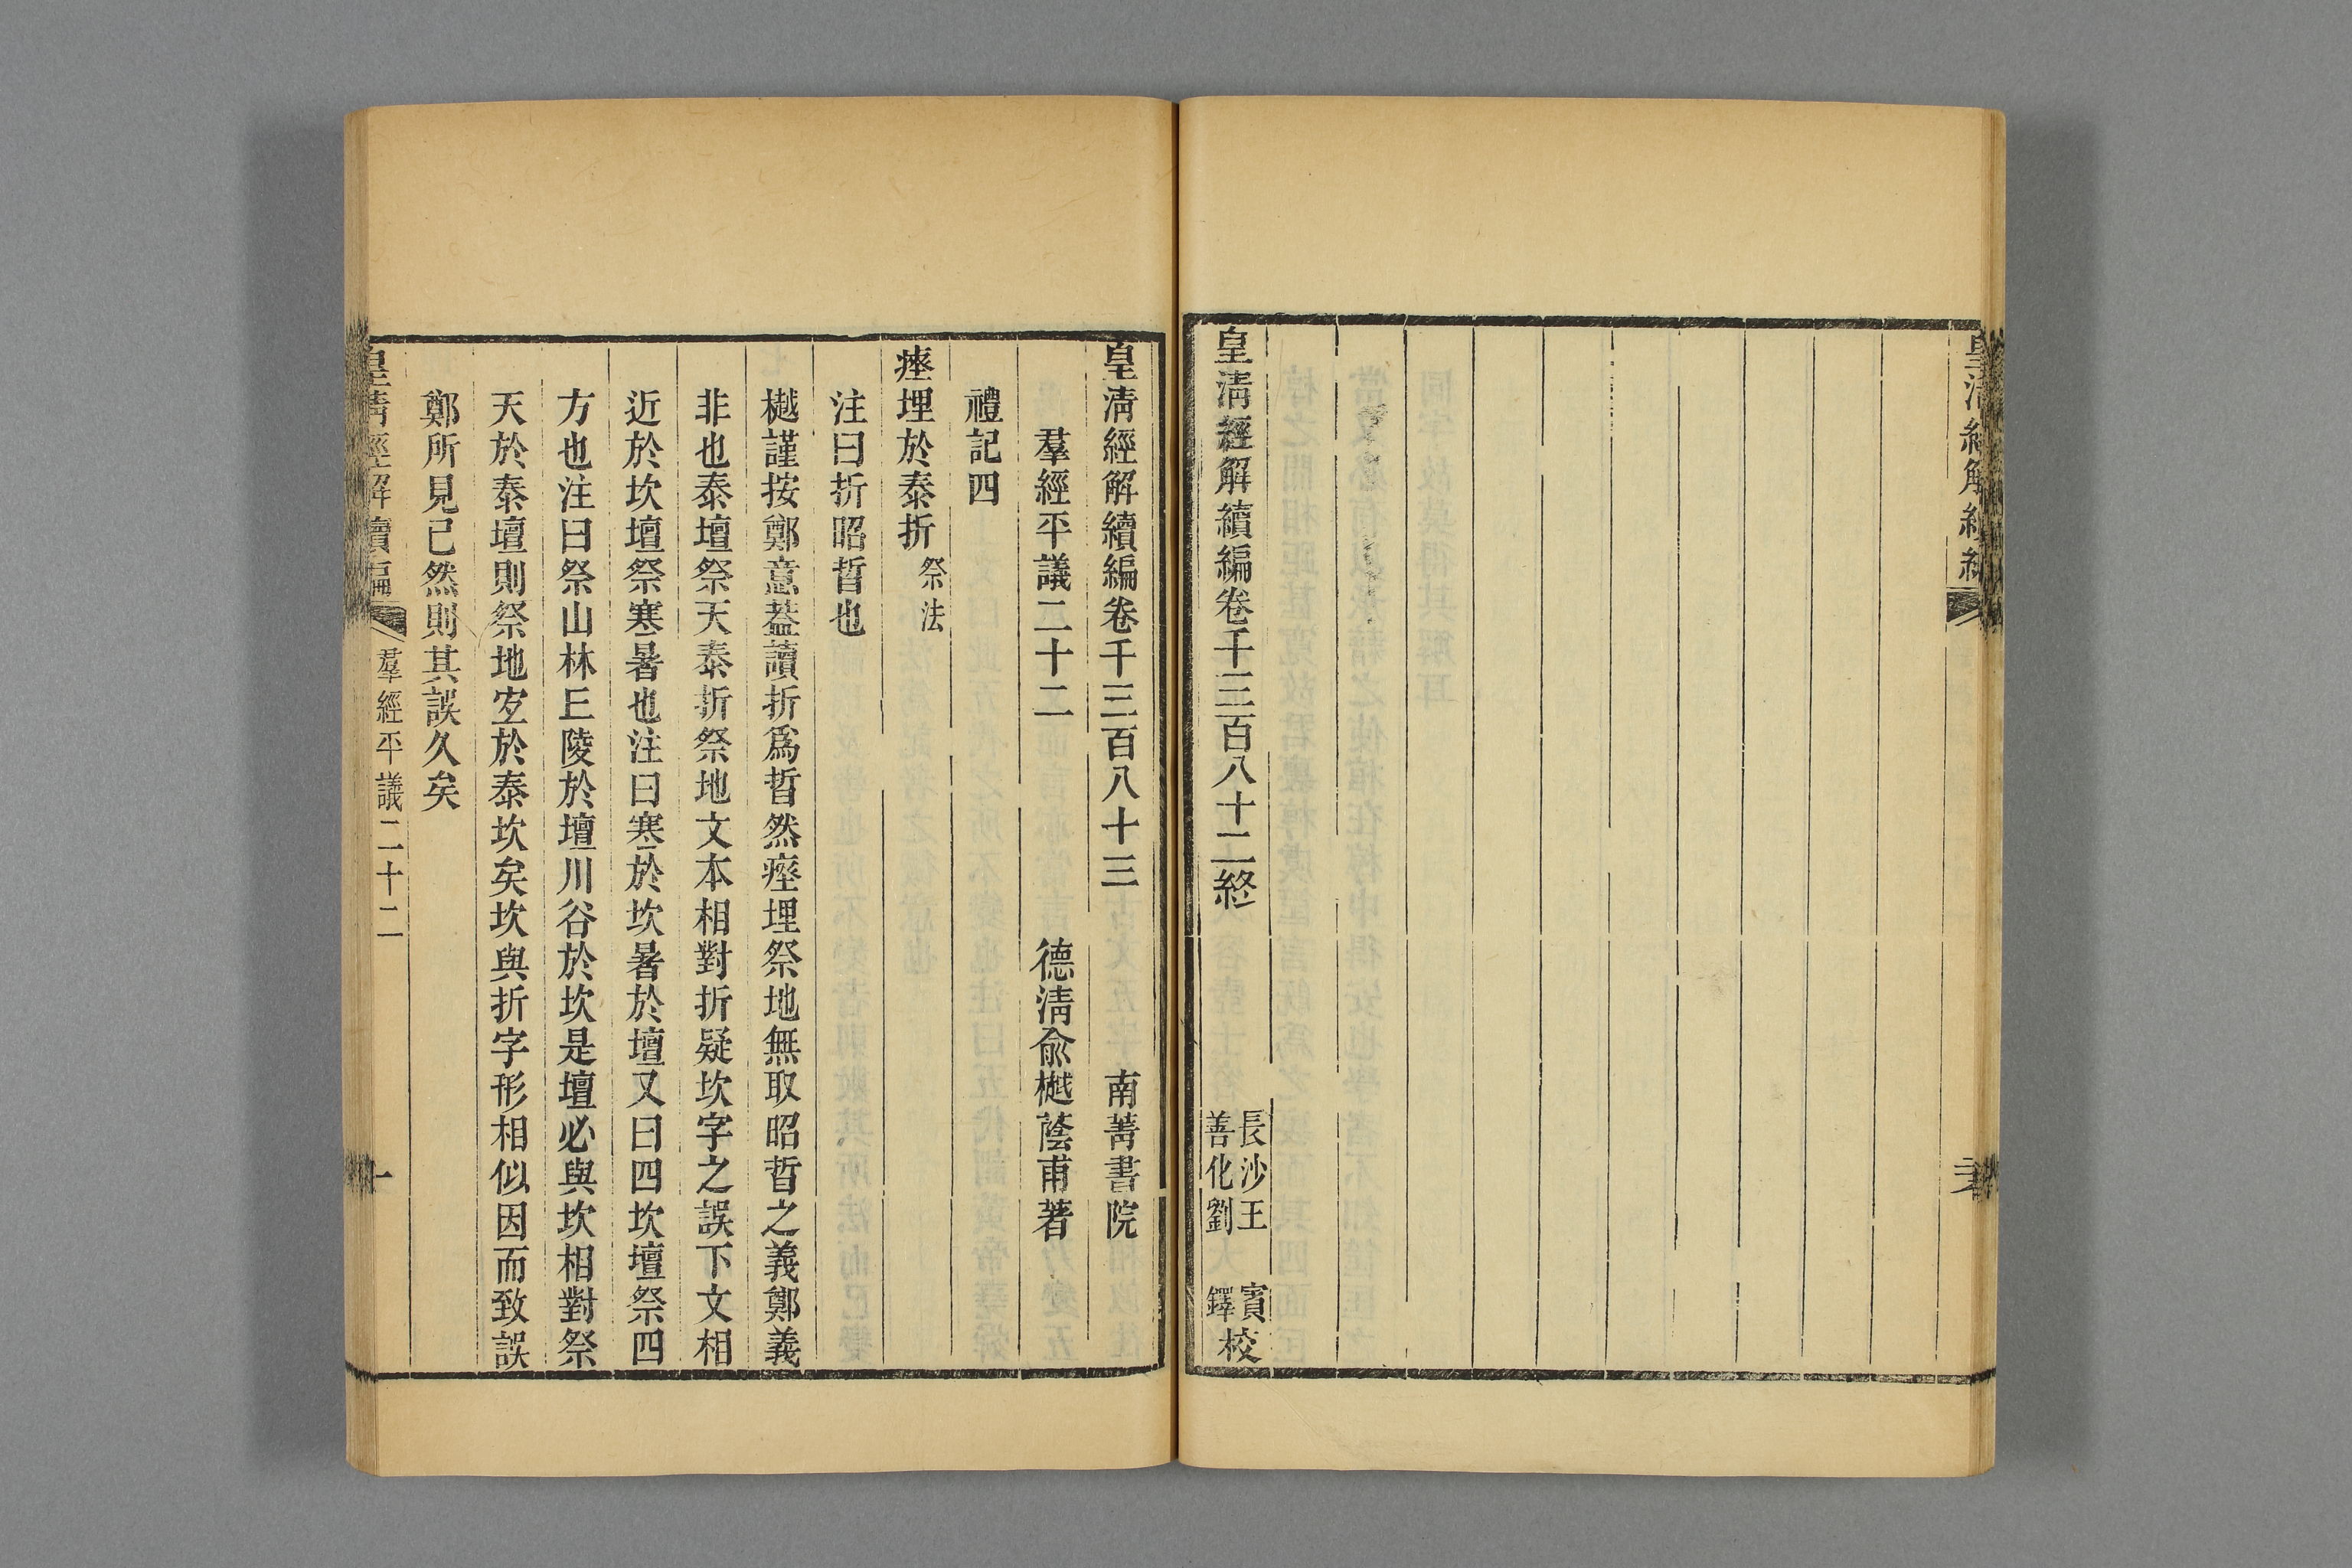 皇清經解續編卷千三百八十二終
長沙王　賓
善化劉　鐸
校
皇清經解續編卷千三百八十三　南菁書院
羣經平議二十二　德清俞樾蔭甫著
禮記四
瘞埋於泰折祭法
注曰折昭晢也
樾謹按鄭意葢讀折爲晢然瘞埋祭地無取昭晢之義鄭義
非也泰壇祭天泰折祭地文本相對折疑坎字之誤下文相
近於坎壇祭寒暑也注曰寒於坎暑於壇又曰四坎壇祭四
方也注曰祭山林𠀉陵於壇川谷於坎是壇必與坎相對祭
天於泰壇則祭地空於泰坎矣坎與折字形相似因而致誤
鄭所見已然則其誤久矣
皇清經解續編　羣經平議二十二　一